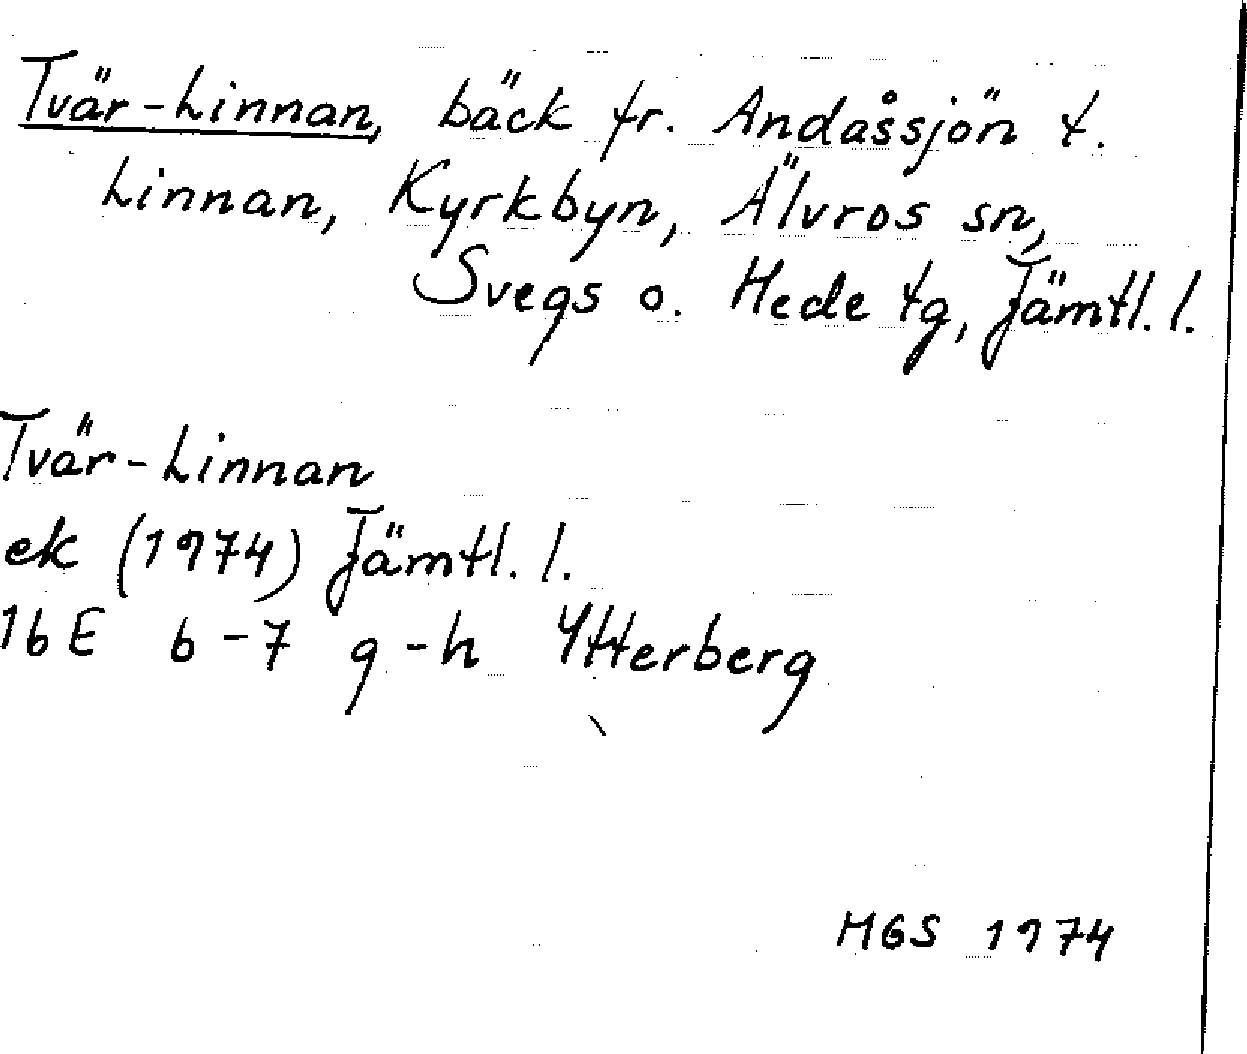 Tvär-Linnan, bäck fr. Andåssjön t.
Linnan, Kyrkbyn, Älvros sn,
Svegs o. Hede tg, Jämtl. l.
Tvär-Linnan
ek (1974) Jämtl. l.
16E 6-7 g-h Ytterberg
MGS 1974